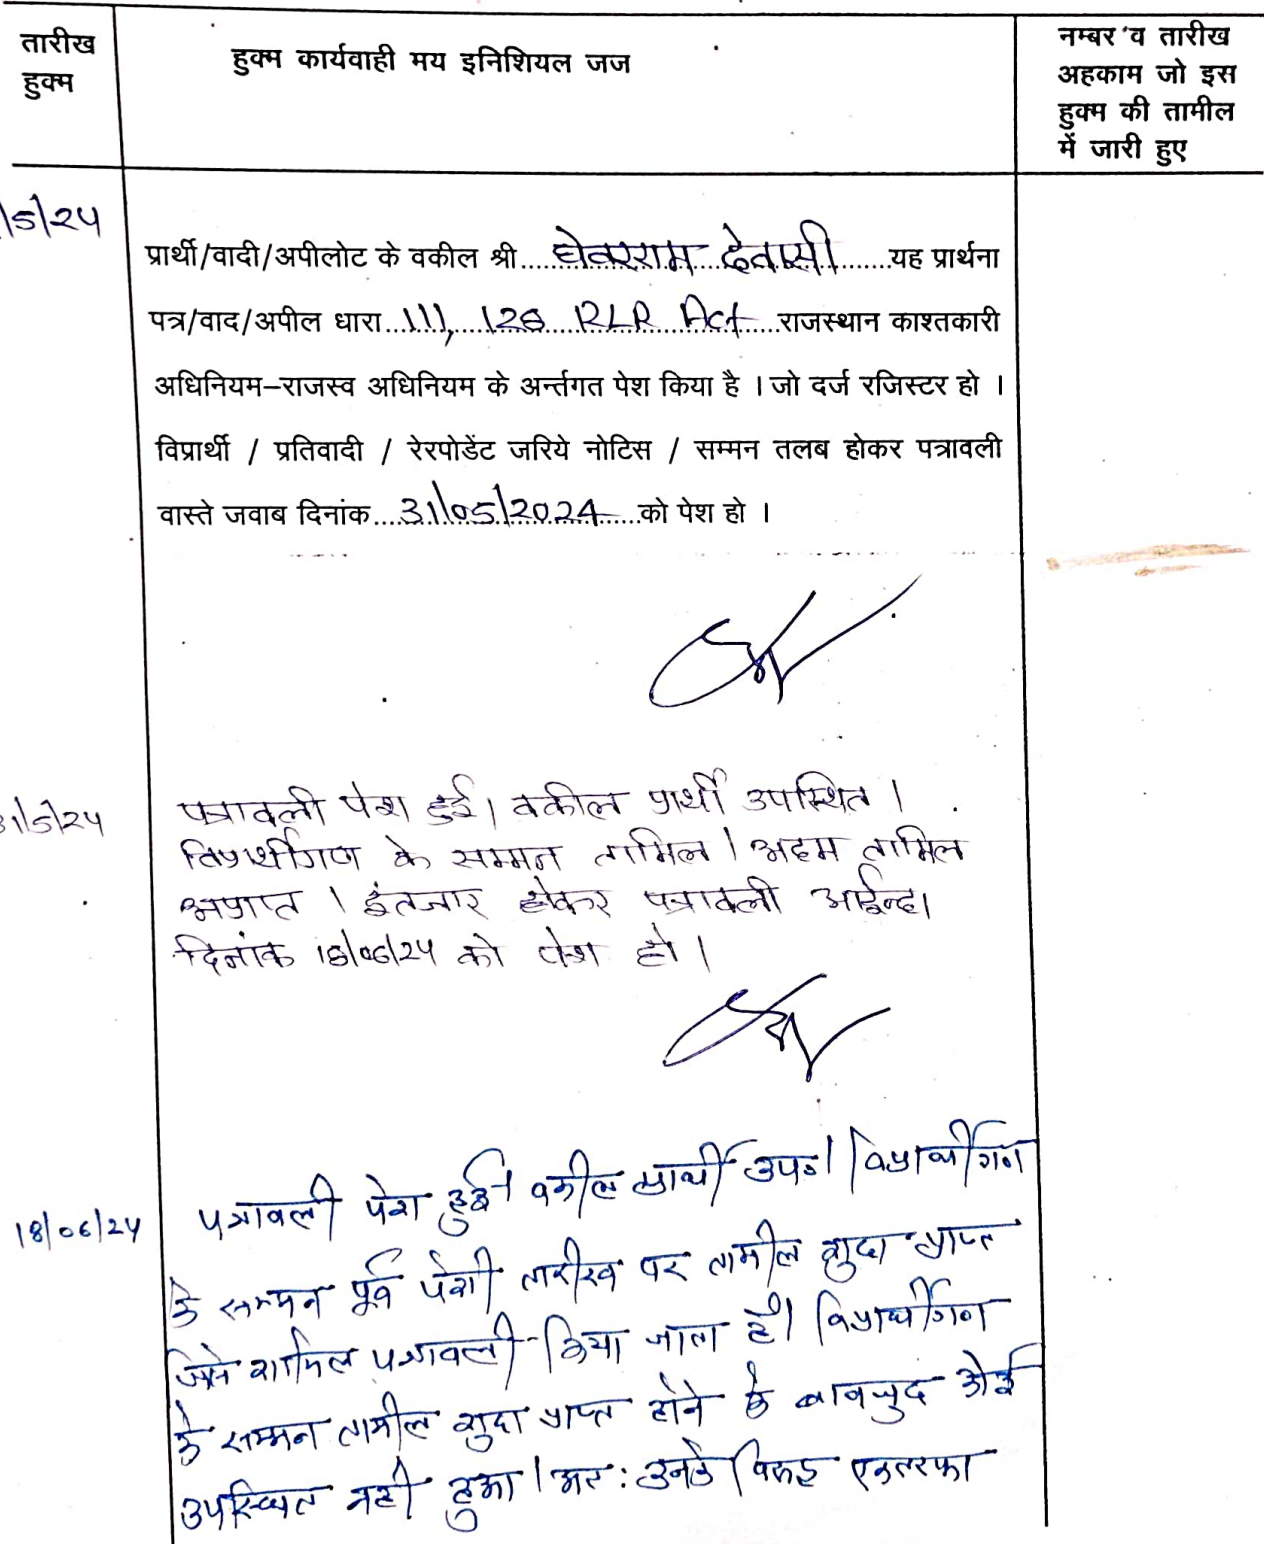 तारीख
हुक्म
हुक्म कार्यवाही मय इनिशियल जज
नम्बर व तारीख
अहकाम जो इस
हुक्म की तामील
में जारी हुए
/5/24
प्रार्थी/वादी/अपीलोट के वकील श्री....घेवरराम देवासी....यह प्रार्थना
पत्र/वाद/अपील धारा...111, 128 RLR Act...राजस्थान काश्तकारी
अधिनियम–राजस्व अधिनियम के अर्न्तगत पेश किया है । जो दर्ज रजिस्टर हो ।
विप्रार्थी / प्रतिवादी / रेरपोडेंट जरिये नोटिस / सम्मन तलब होकर पत्रावली
वास्ते जवाब दिनांक....31/05/2024....को पेश हो ।
31/5/24
पत्रावली पेश हुई। वकील प्रार्थी उपस्थित ।
विप्रार्थीगण के सम्मन तामिल । अदम तामिल
अप्राप्त । इंतजार होकर पत्रावली आईन्दा
दिनांक 18/06/24 को पेश हो ।
18/06/24
पत्रावली पेश हुई। वकील प्रार्थी उप०। विप्रार्थीगन
के सम्मन पूर्व पेशी तारीख पर तामील शुदा प्राप्त
जिसे शामिल पत्रावली किया जाता है। विप्रार्थीगन
के सम्मन तामील शुदा प्राप्त होने के बावजुद कोई
उपस्थित नही हुआ । अत: उनके विरुद्ध एकतरफा